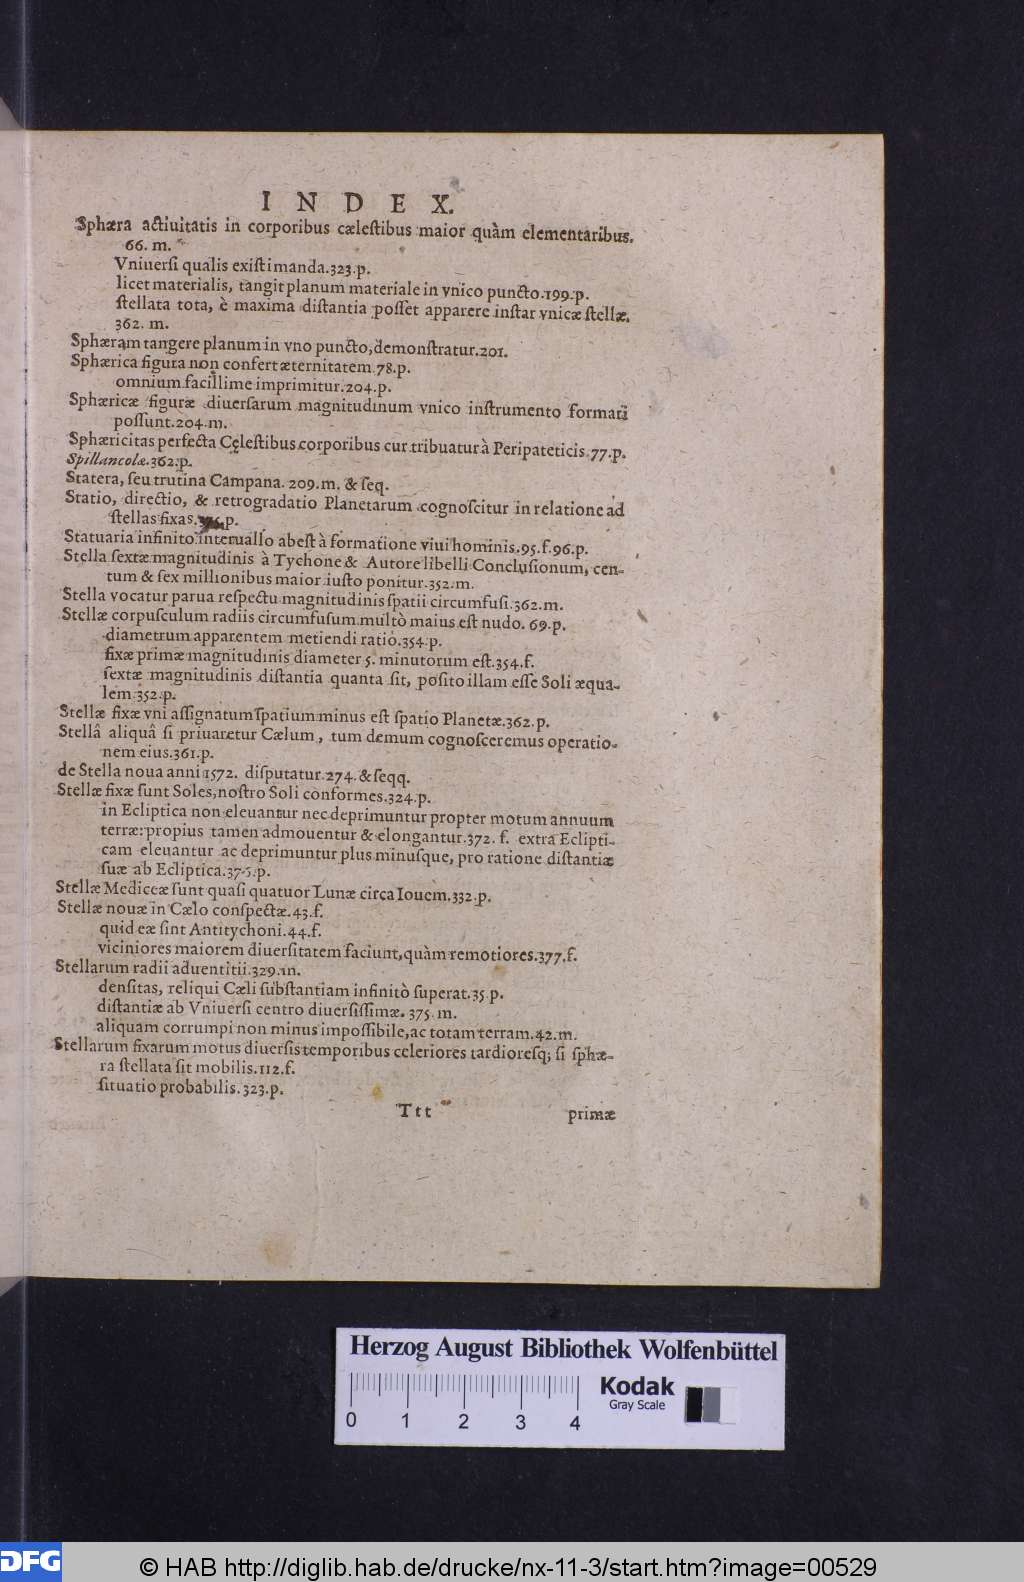 INDEX.
Sphæra actiuitatis in corporibus cæleſtibus maior quàm elementaribus.
66. m.
Vniuerſi qualis exiſtimanda.323.p.
licet materialis, tangit planum materiale in vnico puncto.199.p.
ſtellata tota, è maxima diſtantia poſſet apparere inſtar vnicæ ſtellæ.
362. m.
Sphæram tangere planum in vno puncto, demonſtratur.201.
Sphærica figura non confert æternitatem.78.p.
omnium facillime imprimitur.204.p.
Sphæricæ figuræ diuerſarum magnitudinum vnico inſtrumento formari
poſſunt.204.m.
Sphæricitas perfecta Cęleſtibus corporibus cur tribuatur à Peripateticis.77.p.
Spillancolæ.362.p.
Statera, ſeu trutina Campana. 209.m. & ſeq.
Statio, directio, & retrogradatio Planetarum cognoſcitur in relatione ad
ſtellas fixas. p.
Statuaria infinito interuallo abeſt à formatione viui hominis.95.f.96.p.
Stella ſextæ magnitudinis à Tychone & Autore libelli Concluſionum, cen-
tum & ſex millionibus maior iuſto ponitur.352.m.
Stella vocatur parua reſpectu magnitudinis ſpatii circumfuſi.362.m.
Stellæ corpuſculum radiis circumfuſum multò maius eſt nudo. 69.p.
diametrum apparentem metiendi ratio.354.p.
fixæ primæ magnitudinis diameter 5. minutorum eſt.354.f.
ſextæ magnitudinis diſtantia quanta ſit, poſito illam eſſe Soli æqua-
lem.352.p.
Stellæ fixæ vni aſſignatum ſpatium minus eſt ſpatio Planetæ.362.p.
Stellâ aliquâ ſi priuaretur Cælum, tum demum cognoſceremus operatio-
nem eius.361.p.
de Stella noua anni 1572. diſputatur.274.&ſeqq.
Stellæ fixæ ſunt Soles, noſtro Soli conformes.324.p.
in Ecliptica non eleuantur nec deprimuntur propter motum annuum
terræ: propius tamen admouentur & elongantur.372. f. extra Eclipti-
cam eleuantur ac deprimuntur plus minuſque, pro ratione diſtantiæ
ſuæ ab Ecliptica.375.p.
Stellæ Mediceæ ſunt quaſi quatuor Lunæ circa Iouem.332.p.
Stellæ nouæ in Cælo conſpectæ.43.f.
quid eæ ſint Antitychoni.44.f.
viciniores maiorem diuerſitatem faciunt, quàm remotiores.377.f.
Stellarum radii aduentitii.329.m.
denſitas, reliqui Cæli ſubſtantiam infinitò ſuperat.35.p.
diſtantiæ ab Vniuerſi centro diuerſiſſimæ. 375.m.
aliquam corrumpi non minus impoſſibile, ac totam terram.42.m.
Stellarum fixarum motus diuerſis temporibus celeriores tardioreſq; ſi ſphæ-
ra ſtellata ſit mobilis.112.f.
ſituatio probabilis.323.p.
Ttt primæ
Herzog August Bibliothek Wolfenbüttel
0 1 2 3 4
Kodak
Gray Scale
DFG © HAB http://diglib.hab.de/drucke/nx-11-3/start.htm?image=00529